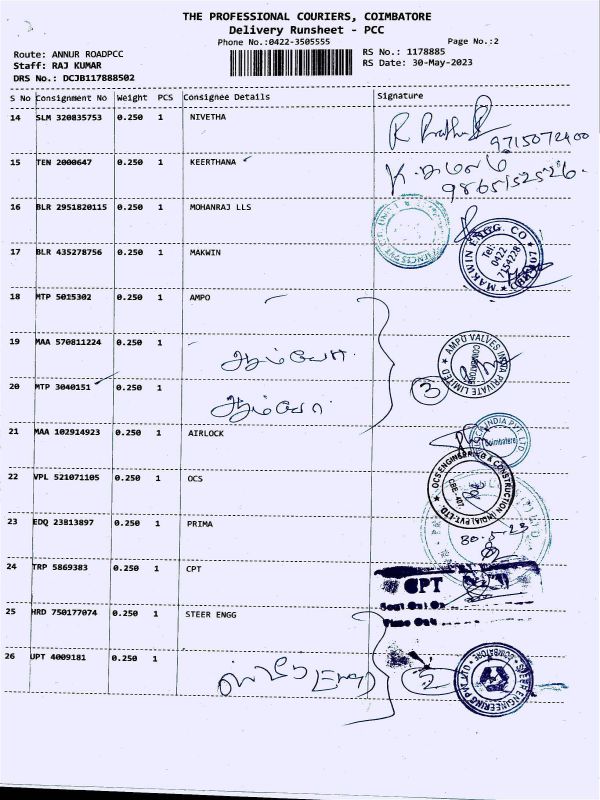 THE PROFESSIONAL COURIERS, COIMBATORE
Delivery Runsheet - PCC
Phone No.:0422-3505555
Page No.:2
Route: ANNUR ROADPCC
RS No.: 1178885
Staff: RAJ KUMAR
RS Date: 30-May-2023
DRS No.: DCJB117888502
S No Consignment No Weight PCS Consignee Details Signature
14 SLM 320835753 0.250 1 NIVETHA
9715072400
15 TEN 2000647 0.250 1 KEERTHANA
9865152526
16 BLR 2951820115 0.250 1 MOHANRAJ LLS
17 BLR 435278756 0.250 1 MAKWIN
MAKWIN ENGG. CO
Tel: 0422 7154228
18 MTP 5015302 0.250 1 AMPO
19 MAA 570811224 0.250 1
AMPO VALVES INDIA PRIVATE LIMITED
COIMBATORE
20 MTP 3040151 0.250 1
3
21 MAA 102914923 0.250 1 AIRLOCK
INDIA PVT. LTD
Coimbatore
22 VPL 521071105 0.250 1 OCS
OCS ENGINEERING & CONSTRUCTION (INDIA) PVT. LTD.
CBE-407
23 EDQ 23813897 0.250 1 PRIMA
30.5.23
24 TRP 5869383 0.250 1 CPT
CPT
Seal On
Time Out
25 HRD 750177074 0.250 1 STEER ENGG
26 UPT 4009181 0.250 1
2
STEER ENGINEERING PVT LTD
COIMBATORE